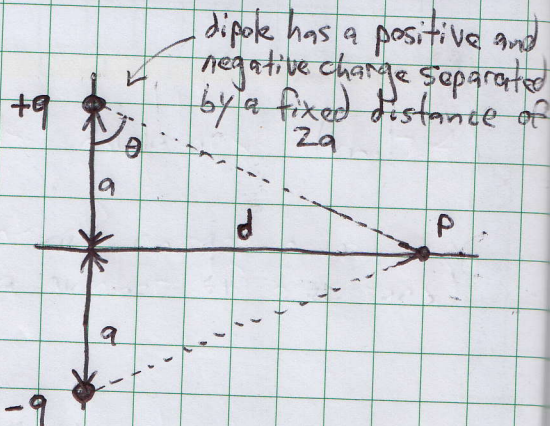 dipole has a positive and
negative charge separated
by a fixed distance of
2a
+q
θ
a
d
P
a
-q